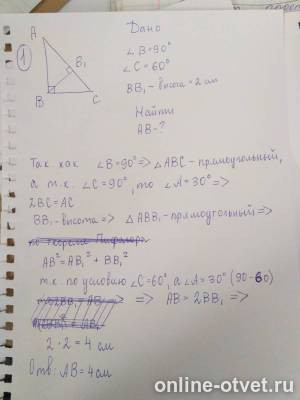 Дано
1
A
B₁
B
C
∠B=90°
∠C=60°
BB₁ - высота = 2 см
Найти
AB-?
Так как ∠B=90° => △ABC - прямоугольный,
а т.к. ∠C=90°, то ∠A=30° =>
2BC=AC
BB₁ - высота => △ABB₁ - прямоугольный =>
по теореме Пифагора
AB²=AB₁² + BB₁²
т.к. по условию ∠C=60°, а ∠A=30° (90-60)
=> AB=2BB₁ =>
2·2=4 см
Отв: AB=4см
online-otvet.ru